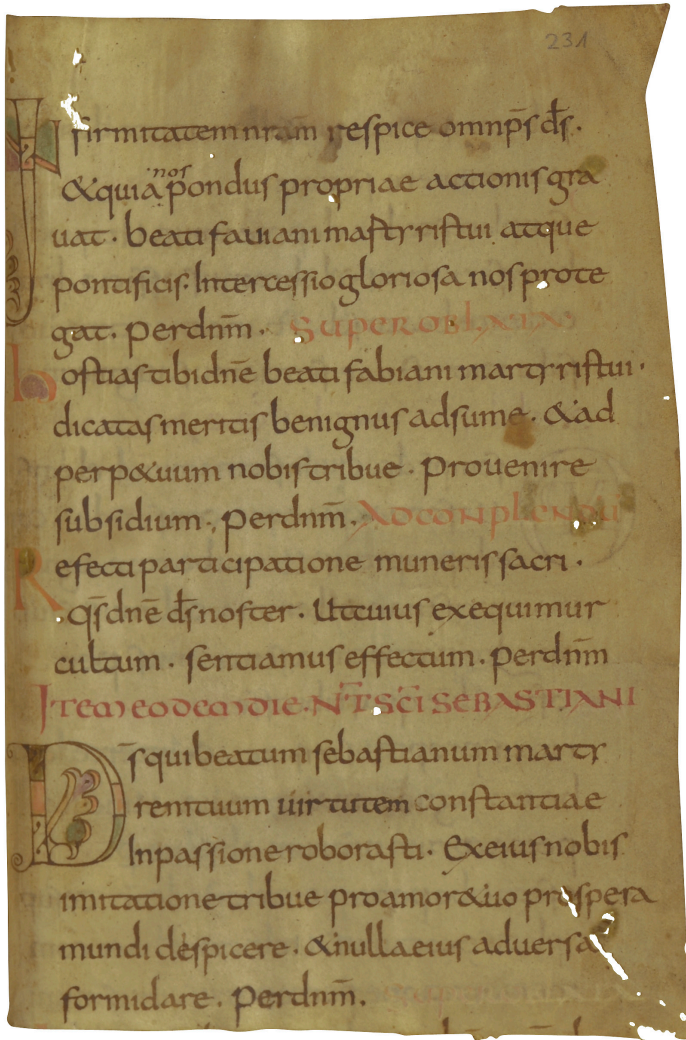 231
Infirmitatem nram respice omnps ds.
&quia nos pondus propriae actionis gra
uat. beati fauiani martyris tui atque
pontificis. Intercessio gloriosa nos prote
gat. perdnm. super oblata
hostias tibi dne beati fabiani martyris tui.
dicatas meritis benignus adsume. &ad
perp&uum nobis tribue. prouenire
subsidium. perdnm. Ad conplendu
Refecti participatione muneris sacri.
qs dne ds noster. Ut cuius exequimur
cultum. sentiamus effectum. perdnm
Item eodem die. NT SCI SEBASTIANI
Ds qui beatum sebastianum marty
rem tuum uirtutem constantiae
In passione roborasti. Ex eius nobis
imitatione tribue pro amore &uo prospera
mundi despicere. &nulla eius aduersa
formidare. perdnm.